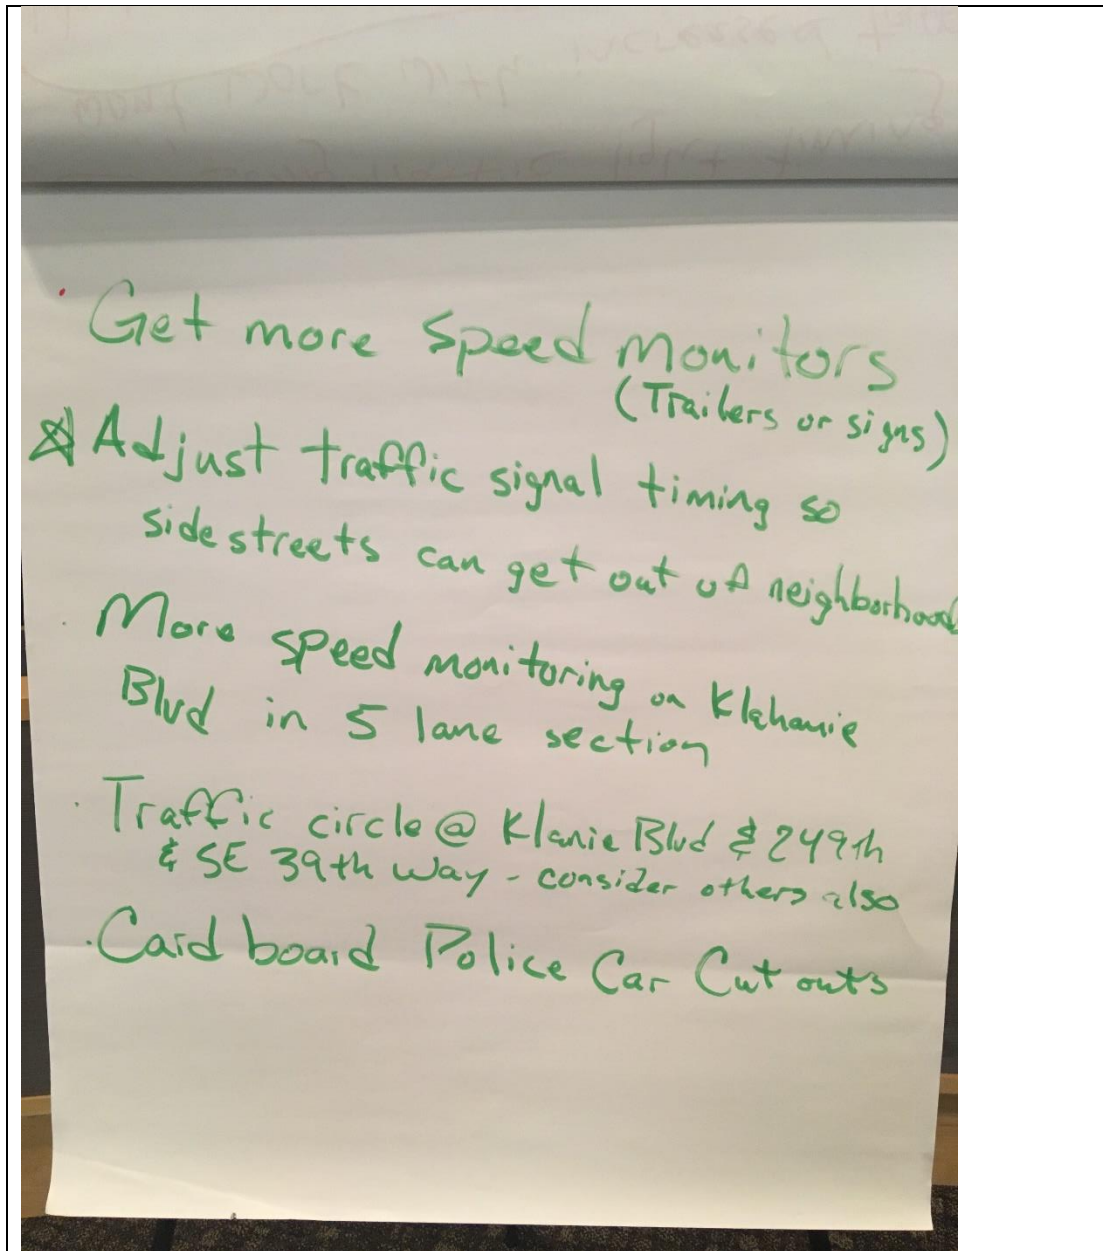 · Get more speed monitors
(Trailers or signs)
☆ Adjust traffic signal timing so
sidestreets can get out of neighborhood
· More speed monitoring on Klahanie
Blvd in 5 lane section
· Traffic circle @ Klanie Blvd & 249th
& SE 39th Way - consider others also
· Cardboard Police Car Cut outs